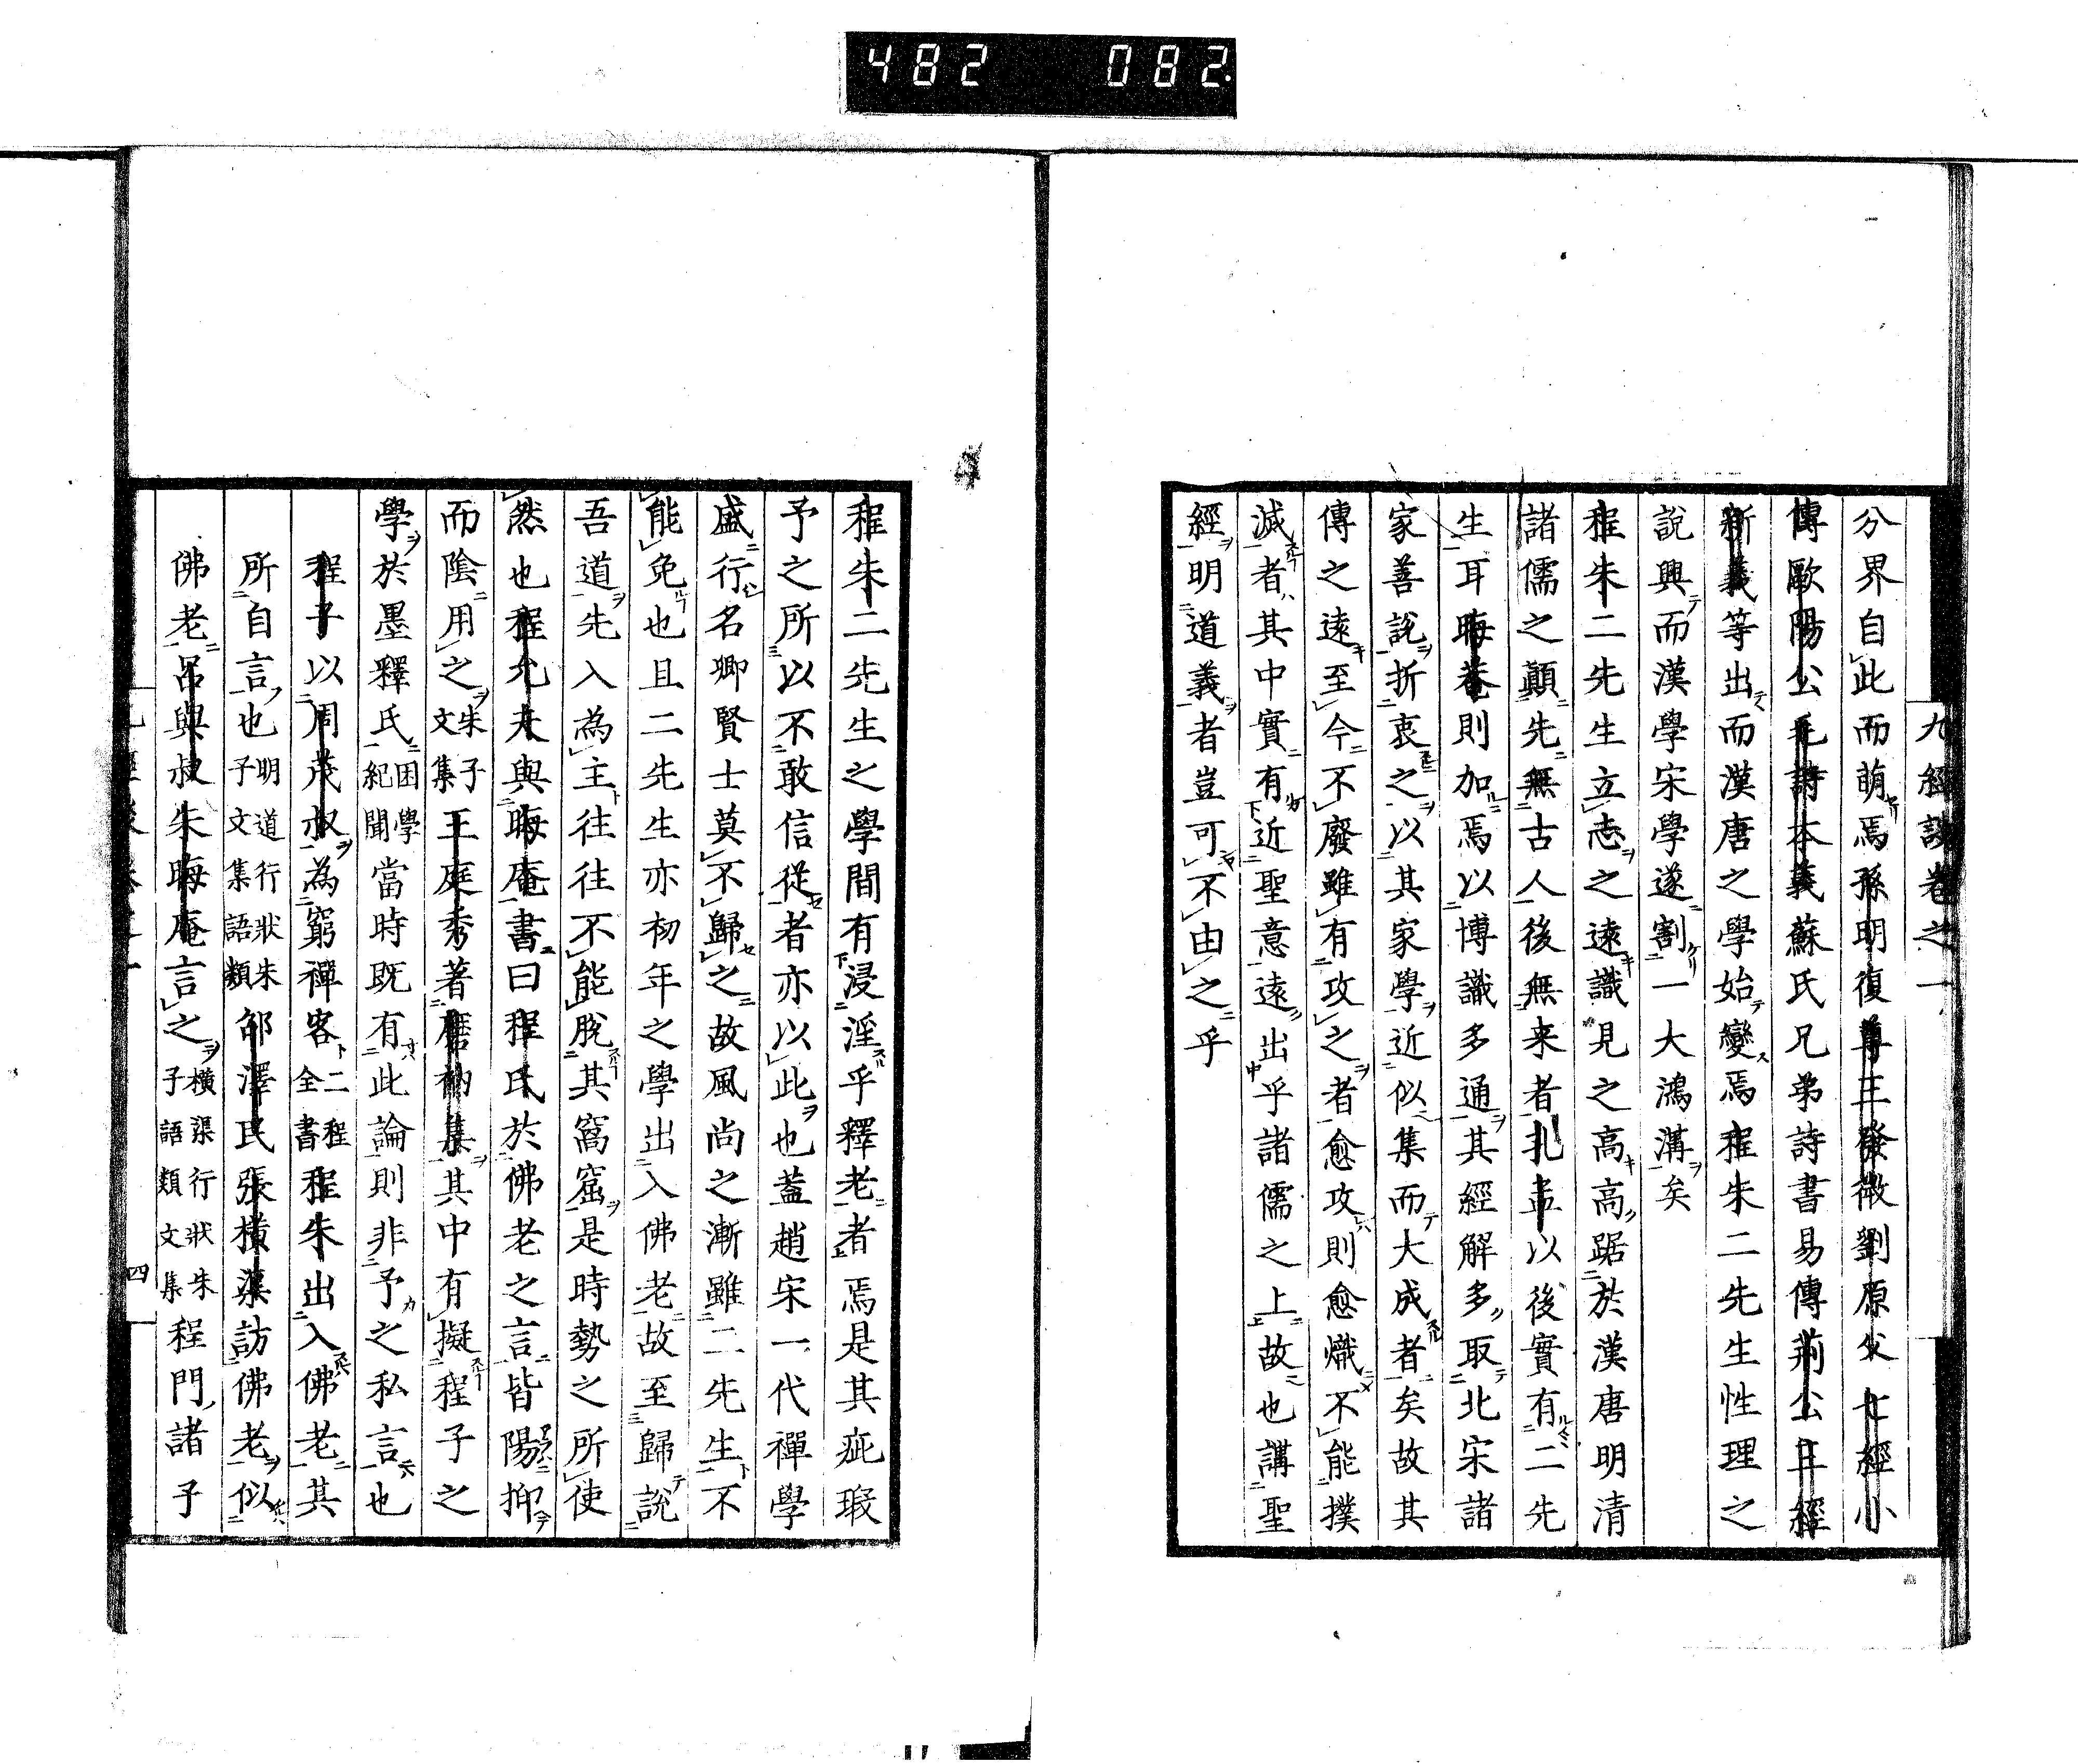 482 082
九經談卷之一
分界自此而萌焉孫明復尊王發微劉原父七經小
傳歐陽公毛詩本義蘇氏兄弟詩書易傳荊公三經
新義等出而漢唐之學始變焉程朱二先生性理之
說興而漢學宋學遂割一大鴻溝矣
程朱二先生立志之遠識見之高高踞於漢唐明清
諸儒之顚先無古人後無来者孔孟以後實有二先
生耳晦菴則加焉以博識多通其經解多取北宋諸
家善說折衷之以其家學近似集而大成者矣故其
傳之遠至今不廢雖有攻之者愈攻則愈熾不能撲
滅者其中實有近聖意遠出乎諸儒之上故也講聖
經明道義者豈可不由之乎
程朱二先生之學間有浸淫乎釋老者焉是其疵瑕
予之所以不敢信從者亦以此也蓋趙宋一代禪學
盛行名卿賢士莫不歸之故風尚之漸雖二先生不
能免也且二先生亦初年之學出入佛老故至歸說
吾道先入為主往往不能脫其窩窟是時勢之所使
然也程允夫與晦庵書曰程氏於佛老之言皆陽抑
而陰用之朱子文集王庭秀著磨衲集其中有擬程子之
學於墨釋氏困學紀聞當時既有此論則非予之私言也
程子以周茂叔為窮禪客二程全書程朱出入佛老其
所自言也明道行狀朱子文集語類邵澤民張橫渠訪佛老似
佛老呂與叔朱晦庵言之橫渠行狀朱子語類文集程門諸子
四